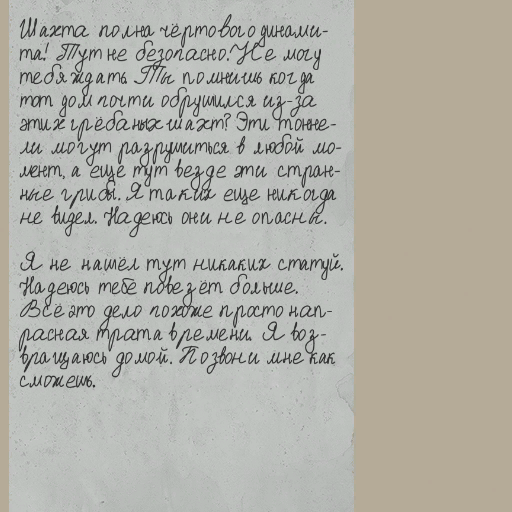 Шахта полна чёртового динами-
та! Тут не безопасно. Не могу
тебя ждать. Ты помнишь когда
тот дом почти обрушился из-за
этих грёбаных шахт? Эти тонне-
ли могут разрушиться в любой мо-
мент, а еще тут везде эти стран-
ные грибы. Я таких еще никогда
не видел. Надеюсь они не опасны.
Я не нашёл тут никаких статуй.
Надеюсь тебе повезёт больше.
Всё это дело похоже просто нап-
расная трата времени. Я воз-
вращаюсь домой. Позвони мне как
сможешь.